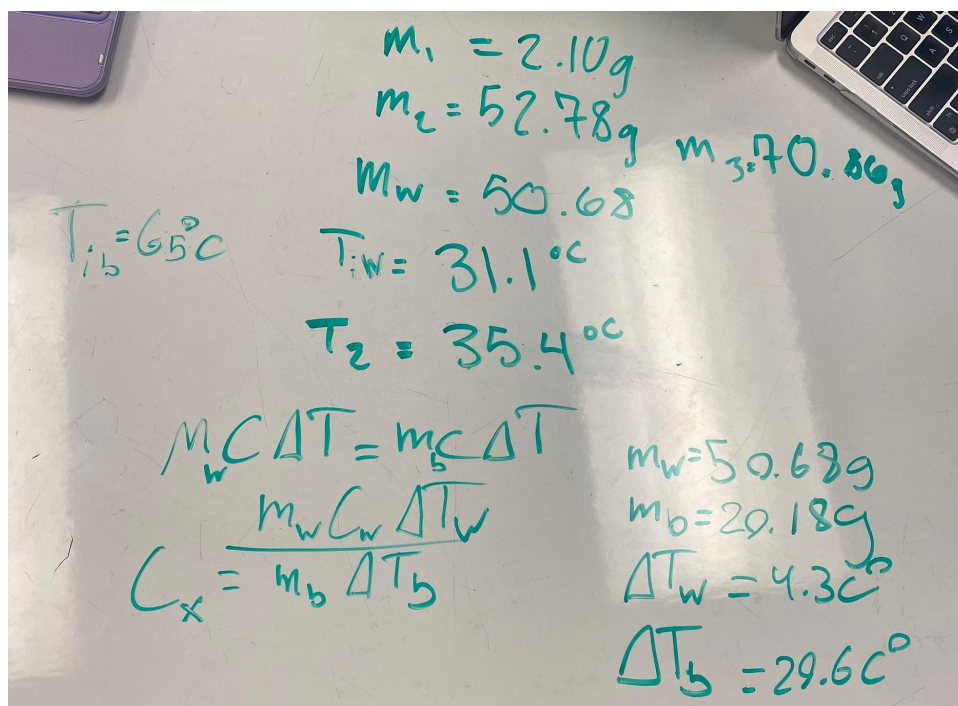 m₁ = 2.10g
m₂ = 52.78g
m₃=70.86g
mw = 50.68
Tib=65°C
Tiw= 31.1°C
T₂ = 35.4°C
MwCΔT=mbCΔT
Cx = mwCwΔTw / mbΔTb
mw=50.68g
mb=20.18g
ΔTw = 4.3C°
ΔTb =29.6C°